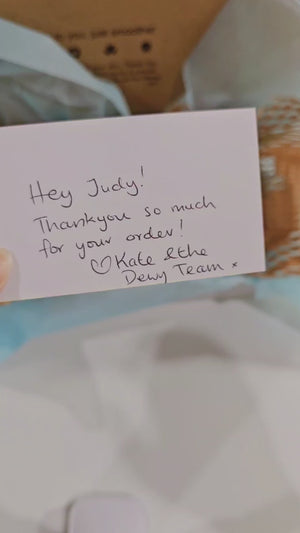 you, just smoother
Hey Judy!
Thankyou so much
for your order!
♡Kate &the
Dewy Team x